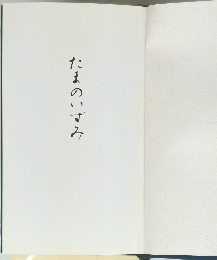 たまのいずみ